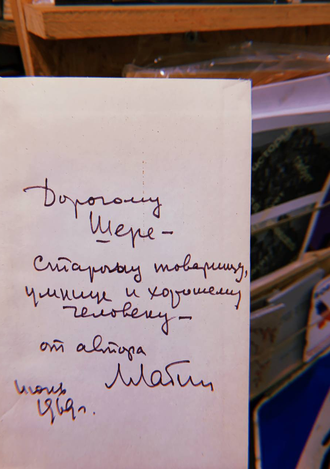 Дорогому
Шере –
старому товарищу,
умнице и хорошему
человеку –
от автора
июнь
1969г.